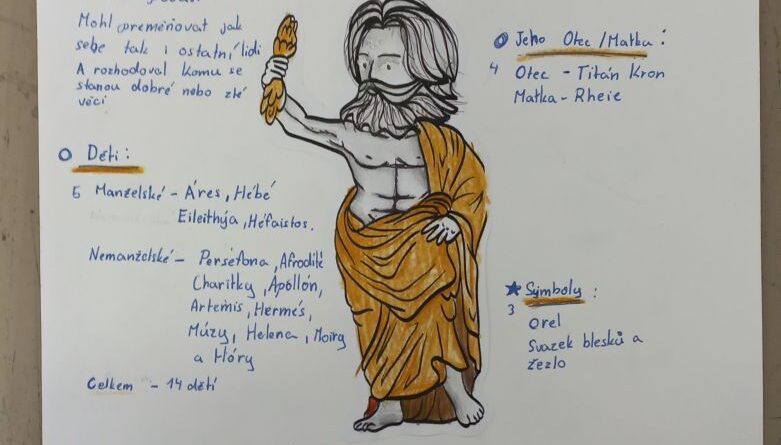 Mohl přeměňovat jak
sebe tak i ostatní lidi
A rozhodoval komu se
stanou dobré nebo zlé
věci
Děti:
5 Manželské - Áres, Hébé
Eileithýa, Héfaistos.
Nemanželské - Perséfona, Afrodité
Charitky, Apollón,
Artemis, Hermés,
Múzy, Helena, Moiry
a Hóry
Celkem - 14 dětí
Jeho Otec/Matka:
4 Otec - Titán Kron
Matka - Rheie
Symboly:
3
orel
Svazek blesků a
žezlo